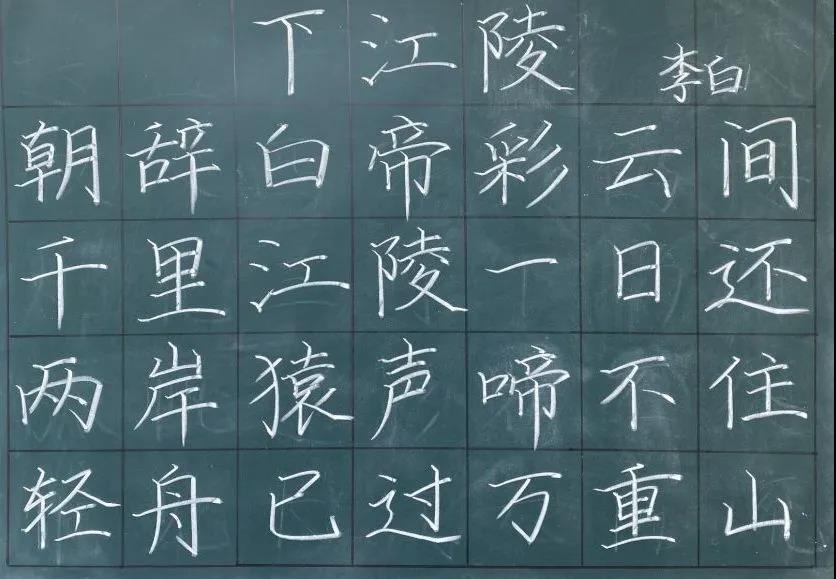 下江陵
李白
朝辞白帝彩云间
千里江陵一日还
两岸猿声啼不住
轻舟已过万重山